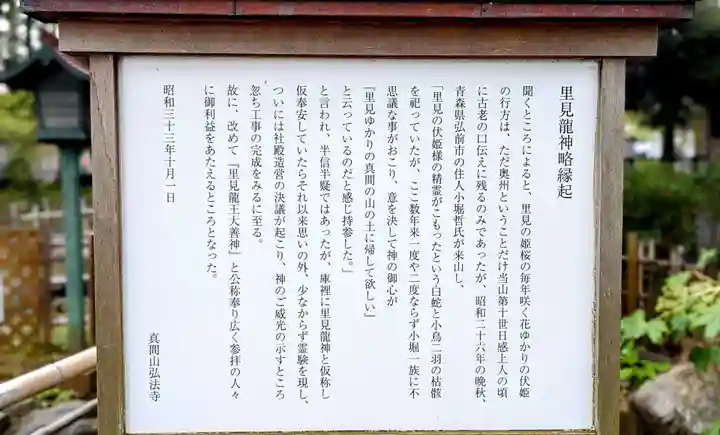 里見龍神略縁起
聞くところによると、里見の姫桜の毎年咲く花ゆかりの伏姫
の行方は、ただ奥州ということだけ当山第十世日感上人の頃
に古老の口伝えに残るのみであったが、昭和二十六年の晩秋、
青森県弘前市の住人小堀哲氏が来山し、
「里見の伏姫様の精霊がこもったという白蛇と小鳥二羽の枯骸
を祀っていたが、ここ数年来一度や二度ならず小堀一族に不
思議な事がおこり、意を決して神の御心が
『里見ゆかりの真間の山の土に帰して欲しい』
と云っているのだと感じ持参した。」
と言われ、半信半疑ではあったが、庫裡に里見龍神と仮称し
仮奉安していたらそれ以来思いの外、少なからず霊験を現し、
ついには社殿造営の決議が起こり、神のご威光の示すところ
忽ち工事の完成をみるに至る。
故に、改めて『里見龍王大善神』と公称奉り広く参拝の人々
に御利益をあたえるところとなった。
昭和三十三年十月一日
真間山弘法寺